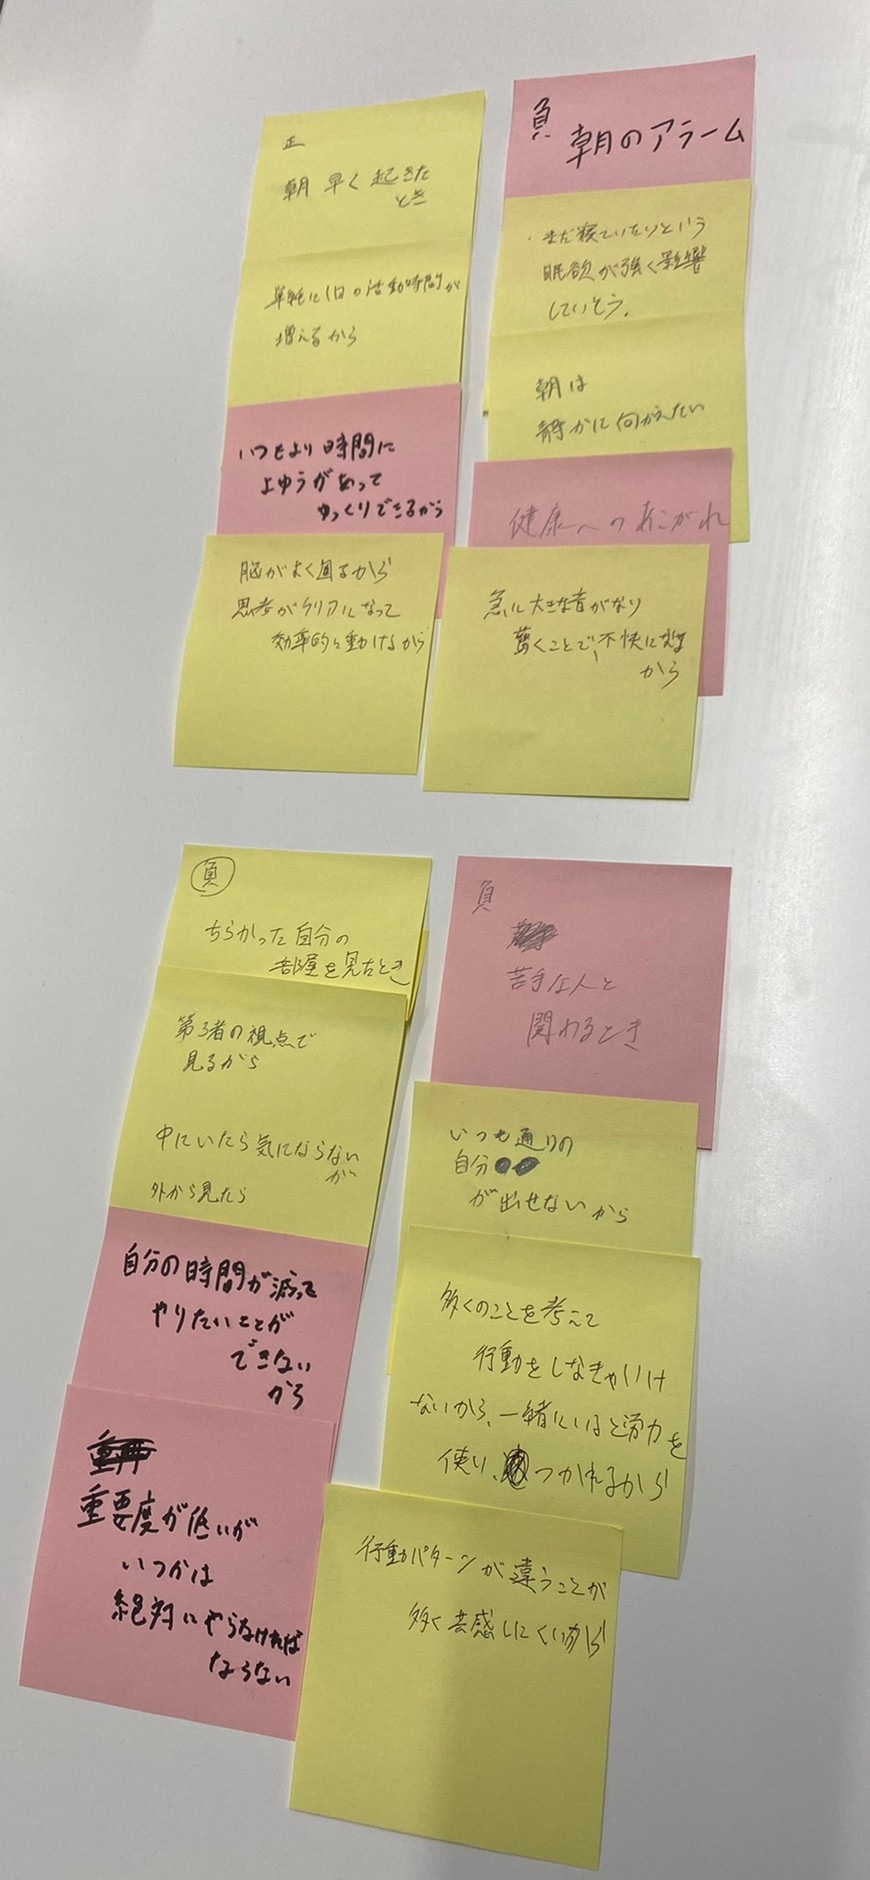 正
朝 早く 起きた
とき
単純に1日の活動時間が
増えるから
いつもより時間に
よゆうがあって
ゆっくりできるから
脳がよく回るから
思考がクリアになって
効率的に動けるから
負
朝のアラーム
・まだ寝ていたいという
眠欲が強く影響
していそう。
朝は
静かに
健康へのあこがれ
急に大きな音がなり
驚くことで、不快に
から
負
ちらかった自分の
部屋を見たとき
第3者の視点で
見るから
中にいたら気にならない
が
外から見たら
自分の時間が減って
やりたいことが
できない
から
重要度が低いが
いつかは
絶対にやらなければ
ならない
負
苦手な人と
関わるとき
いつも通りの
自分
が出せないから
多くのことを考えて
行動をしなきゃいけ
ないから、一緒にいると労力を
使い、つかれるから
行動パターンが違うことが
多く共感しにくいから